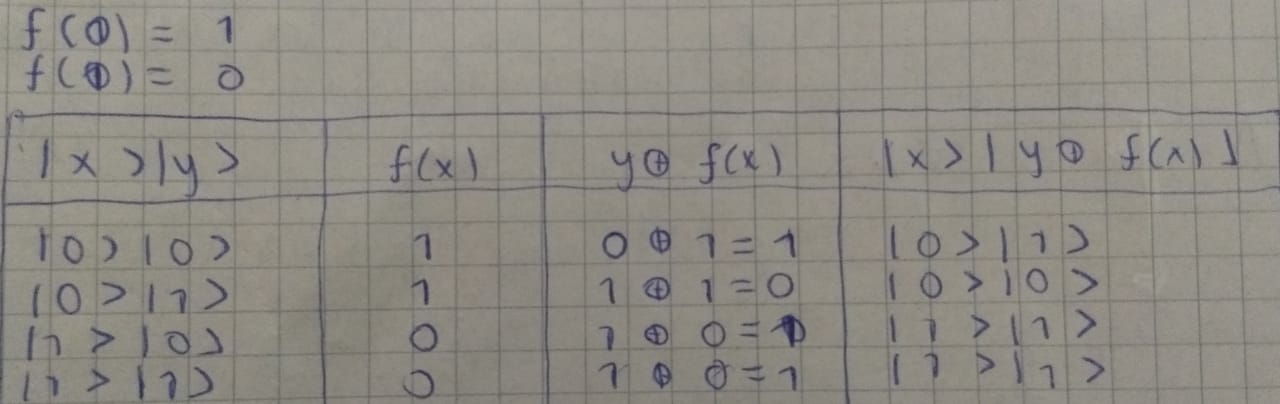 f(0) = 1
f(1) = 0
|x>|y> f(x) y⊕ f(x) |x>|y⊕ f(x)⌋
|0>|0> 1 0 ⊕ 1 = 1 |0>|1>
|0>|1> 1 1 ⊕ 1 = 0 |0>|0>
|1>|0> 0 1 ⊕ 0 = 1 |1>|1>
|1>|1> 0 1 ⊕ 0 = 1 |1>|1>